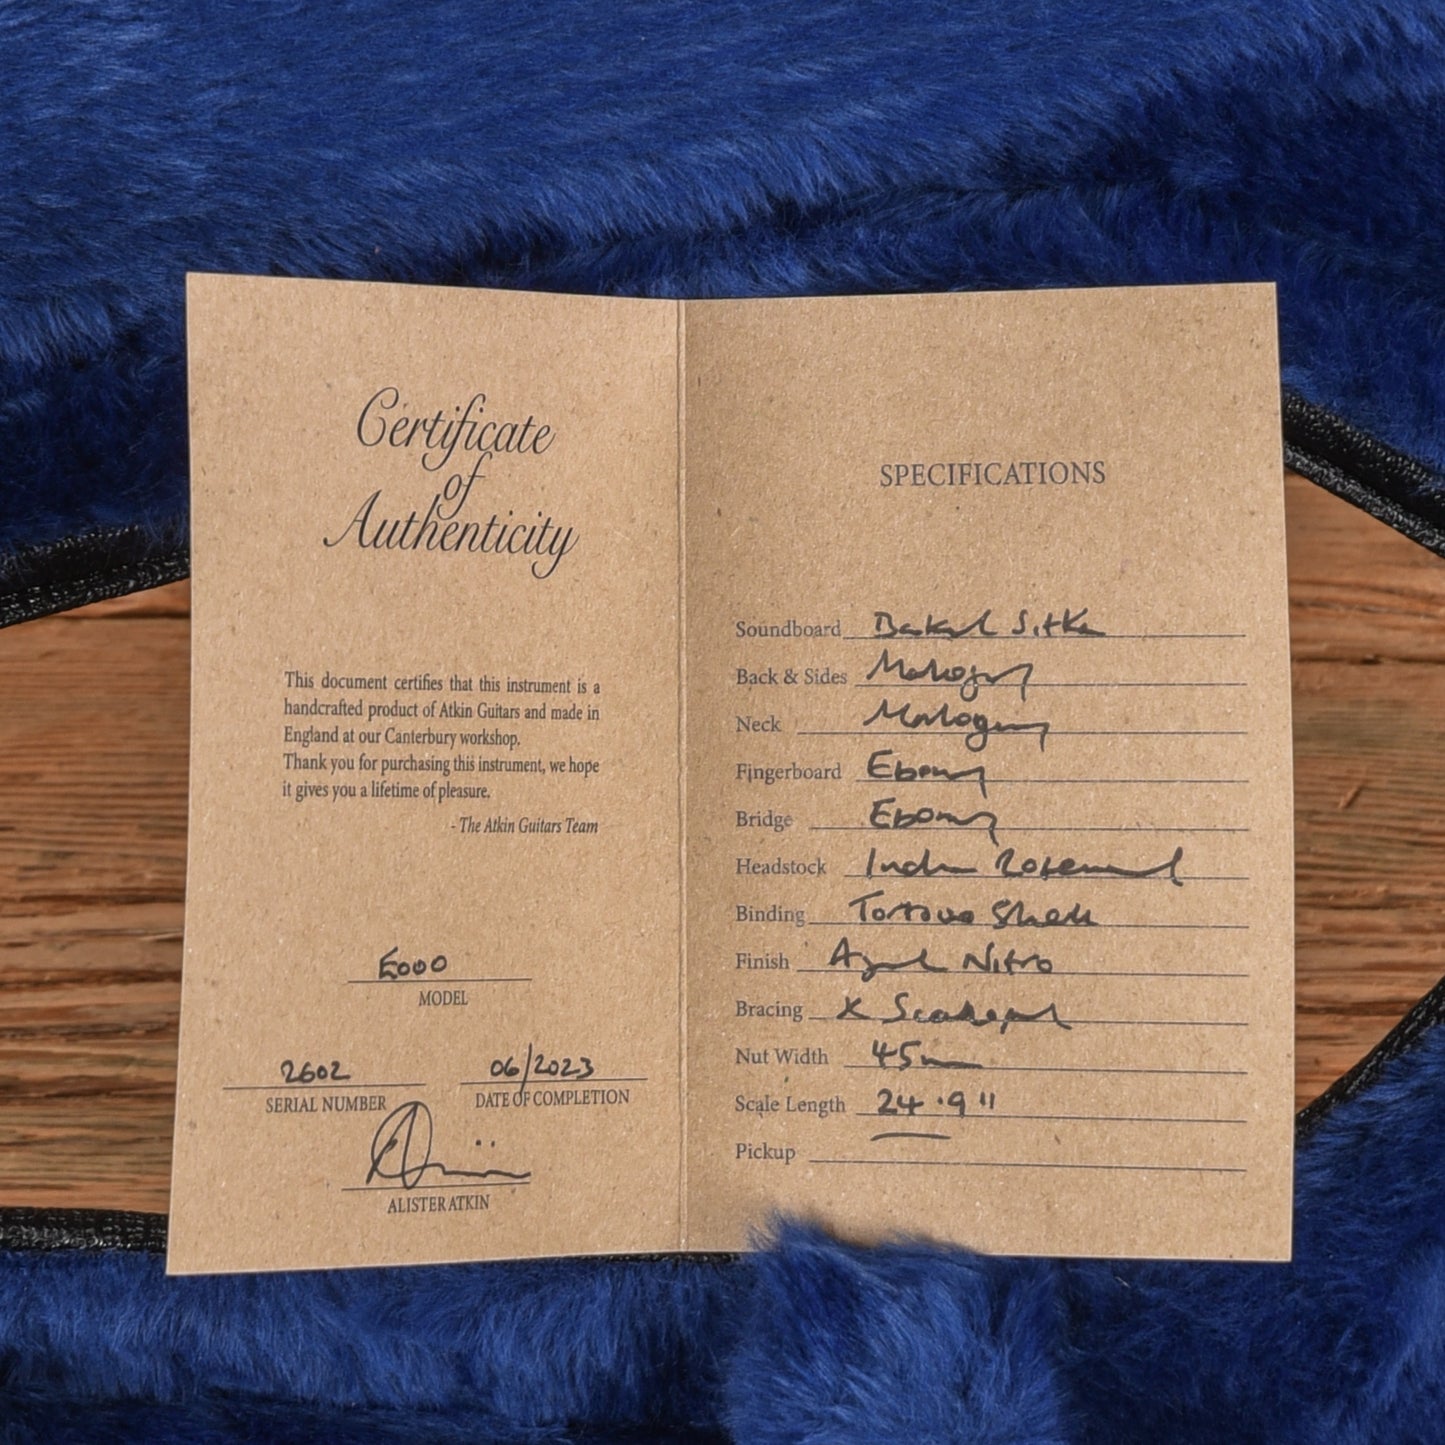 Certificate
of
Authenticity
This document certifies that this instrument is a
handcrafted product of Atkin Guitars and made in
England at our Canterbury workshop.
Thank you for purchasing this instrument, we hope
it gives you a lifetime of pleasure.
- The Atkin Guitars Team
E000
MODEL
2602
SERIAL NUMBER
06/2023
DATE OF COMPLETION
ALISTER ATKIN
SPECIFICATIONS
Soundboard Baked Sitka
Back & Sides Mahogany
Neck Mahogany
Fingerboard Ebony
Bridge Ebony
Headstock Indian Rosewood
Binding Tortoise Shell
Finish Aged Nitro
Bracing X Scalloped
Nut Width 45mm
Scale Length 24.9"
Pickup